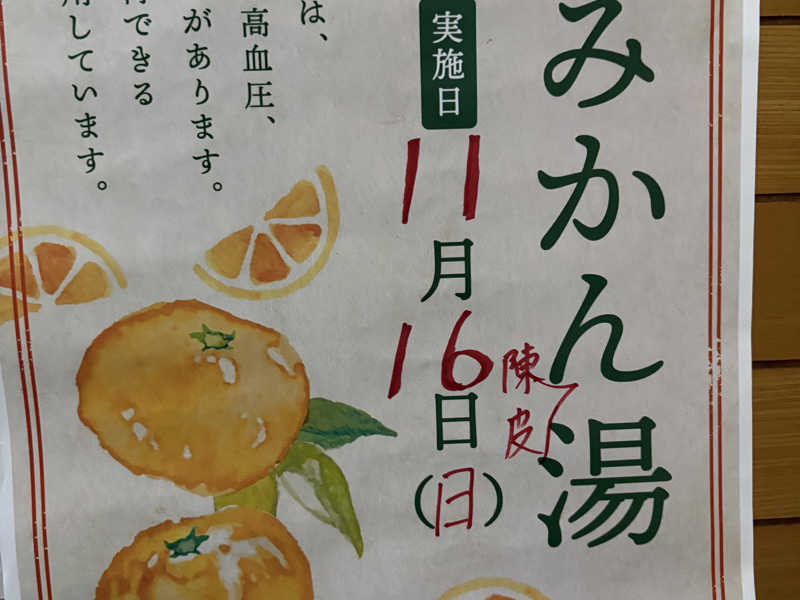 みかん湯
陳皮
実施日
11月16日(日)
は、
高血圧、
があります。
できる
しています。